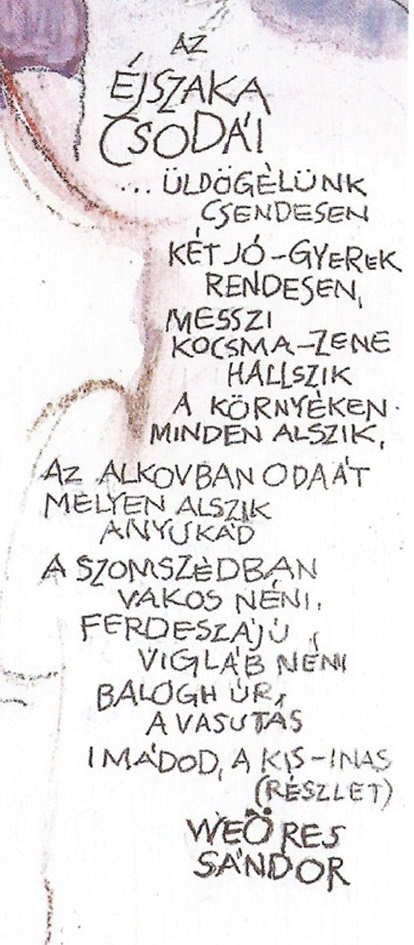 AZ
ÉJSZAKA
CSODÁI
... ÜLDÖGÉLÜNK
CSENDESEN
KÉT JÓ-GYEREK
RENDESEN,
MESSZI
KOCSMA-ZENE
HALLSZIK
A KÖRNYÉKEN
MINDEN ALSZIK,
AZ ALKOVBAN ODAÁT
MÉLYEN ALSZIK
ANYUKÁD
A SZOMSZÉDBAN
VAKOS NÉNI,
FERDESZÁJÚ,
VIGLÁB NÉNI
BALOGH ÚR,
A VASUTAS
IMÁDOD, A KIS-INAS
(RÉSZLET)
WEÖRES
SÁNDOR